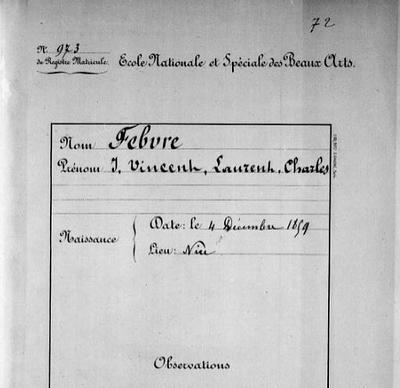 72
N. 973
du Registre Matricule.
Ecole Nationale et Spéciale des Beaux Arts.
Nom Febvre
Prénom J. Vincent, Laurent, Charles
Naissance
Date: le 4 Décembre 1859
Lieu: Nice
Observations